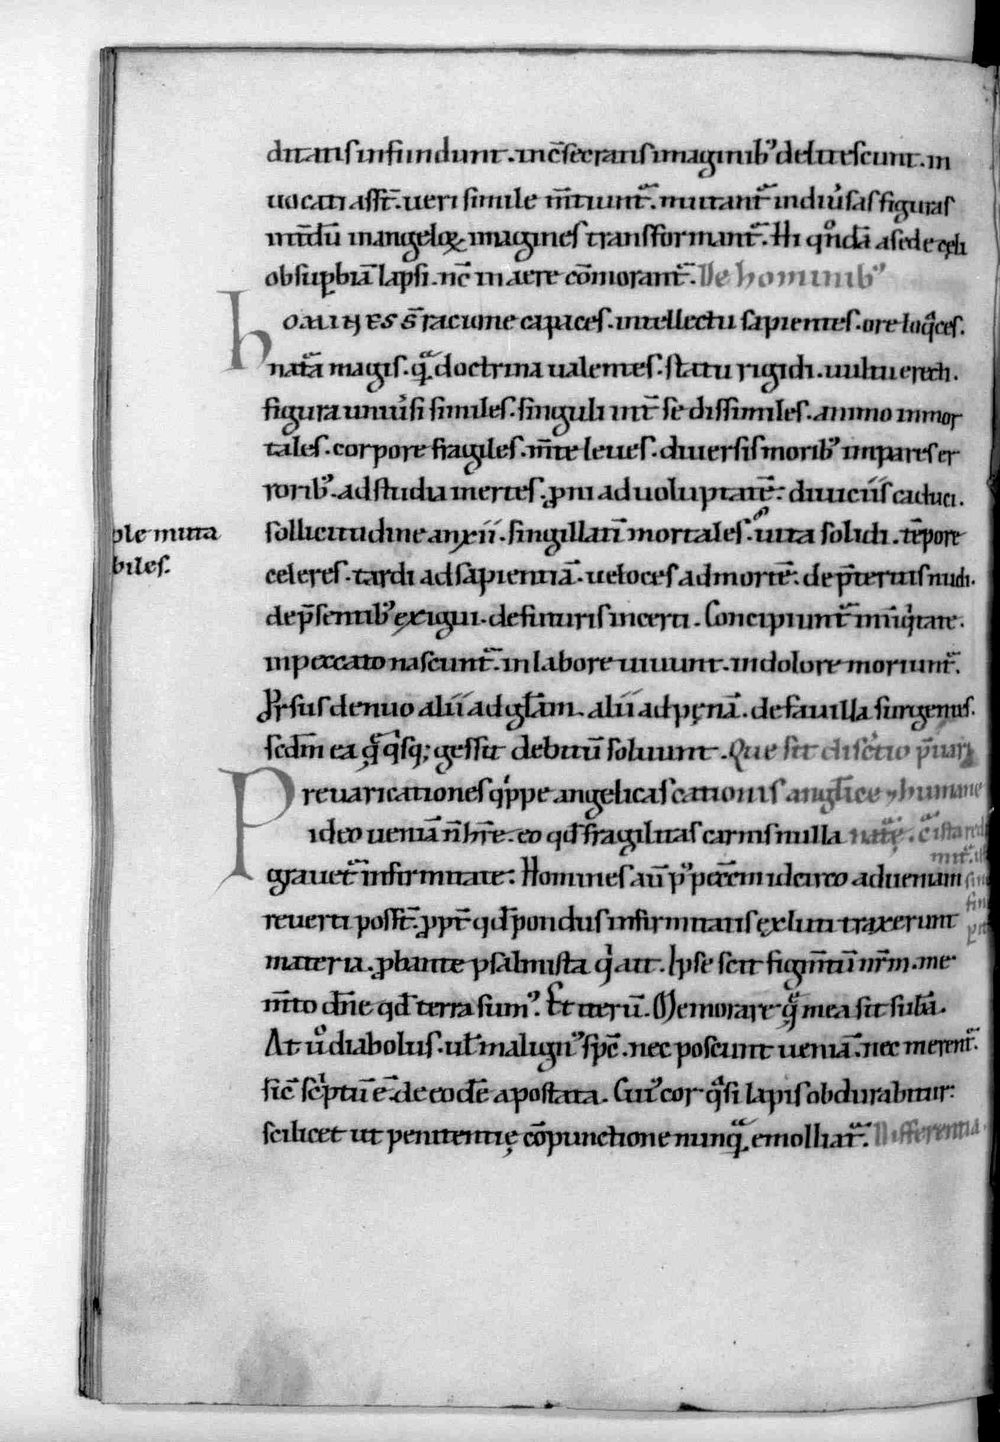 ditatis infundunt. inc̄secratis imaginib᾽ delitescunt. in
uocati ass̄t. ueri simile m̄tiunt᷑. mutant᷑ in diu̾sas figuras
int̄dū in angeloꝝ imagines transformant᷑. Hi qͦndā a sede cęli
ob sup̱biā lapsi. nc̄ in aere cōmorant᷑. De hominib᾽
hOMINES s̄ racione capaces. intellectu sapientes. ore loq̄ces.
nat᷑a magis. q᷑ doctrina ualentes. statu rigidi. uultu erecti.
figura uniu̾si similes. singuli int̄ se dissimiles. animo inmor
tales. corpore fragiles. m̄te leues. diuersis morib᾽ inpares er
rorib᾽. ad studia inertes. ꝓni ad uoluptatē. diuiciis caduci.
ple muta
biles.
sollicitudine anxii. singillatī mortales. uita solidi. tēpore
celeres. tardi ad sapientiā. ueloces ad mortē. de p̄teritis nudi.
de p̄sentib᾽ exigui. de futuris incerti. Concipiunt᷑ in iniq̇tate.
in peccato nascunt᷑. in labore uiuunt. in dolore moriunt᷑.
Rursus denuo alii ad gl̄am. alii ad pęnā. de fauilla surgentes.
scd̄m ea q̄ q̇sq; gessit debitū soluunt. Que sit disc̄tio p̄uari
Preuaricationes q̇ppe angelicas cationis angl̄ice ⁊ humane
ideo ueniā n̄ hr̄e. eo qd̄ fragilitas carnis nulla nat᷑ę.
grauet᷑ infirmitate. Homines aū p᾽ pc̄cm idcirco ad ueniam
reuerti poss̄t. ꝓpt̄ qd̄ pondus infirmitatis ex luti traxerunt
materia. ꝓbante psalmista q̇ ait. Ipse scit figm̄tū nr̄m. me
m̄to dn̄e qd̄ terra sum᾽. Et iterū. Memorare q̄ mea sit sub̄a.
At u̾o diabolus. ut̄ malign᾽ sp̄c. nec poscunt ueniā. nec merent᷑.
sic̄ sc̄ptū ē. de eodē apostata. Cui᾽ cor q̄si lapis obdurabitur.
scilicet ut penitentię cōpunctione nunq᷑ emolliat᷑. Differentia.